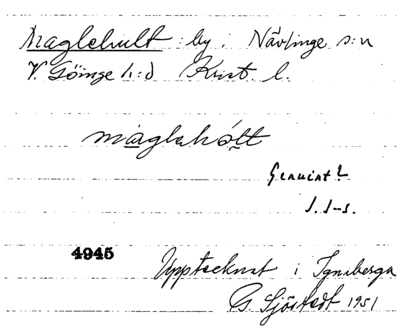 Maglehult by i Nävlinge s:n
V. Göinge h:d Krist. l.
màglehót̲t
Genuint?
S. I-s.
4945
Upptecknat i Ignaberga
G. Sjöstedt 1951